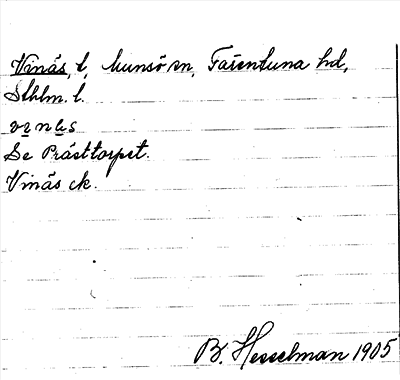 Vinäs, t, Munsö sn, Färentuna hd,
Sthlm. l.
Se Prästtorpet.
Vinäs ck.
B. Hesselman 1905